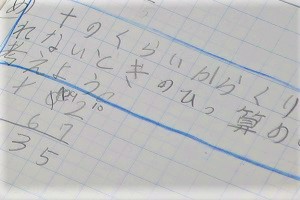 め 十のくらいからくり
れないときのひっ算の
考えよう。
10
2
67
35